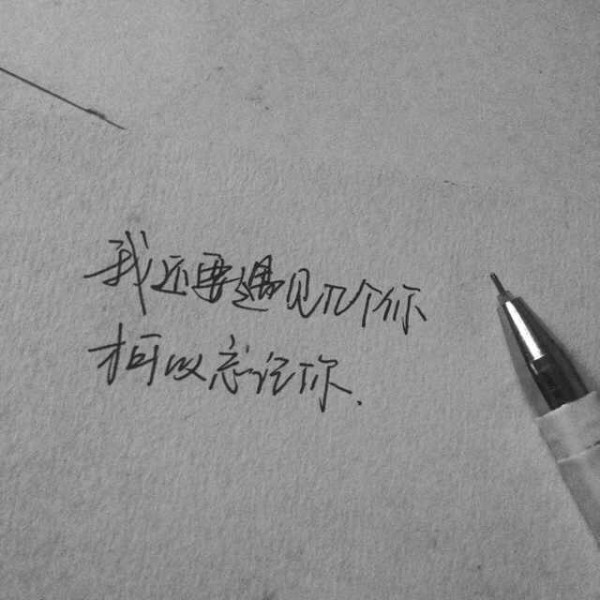 我还要遇见几个你
才可以忘记你.